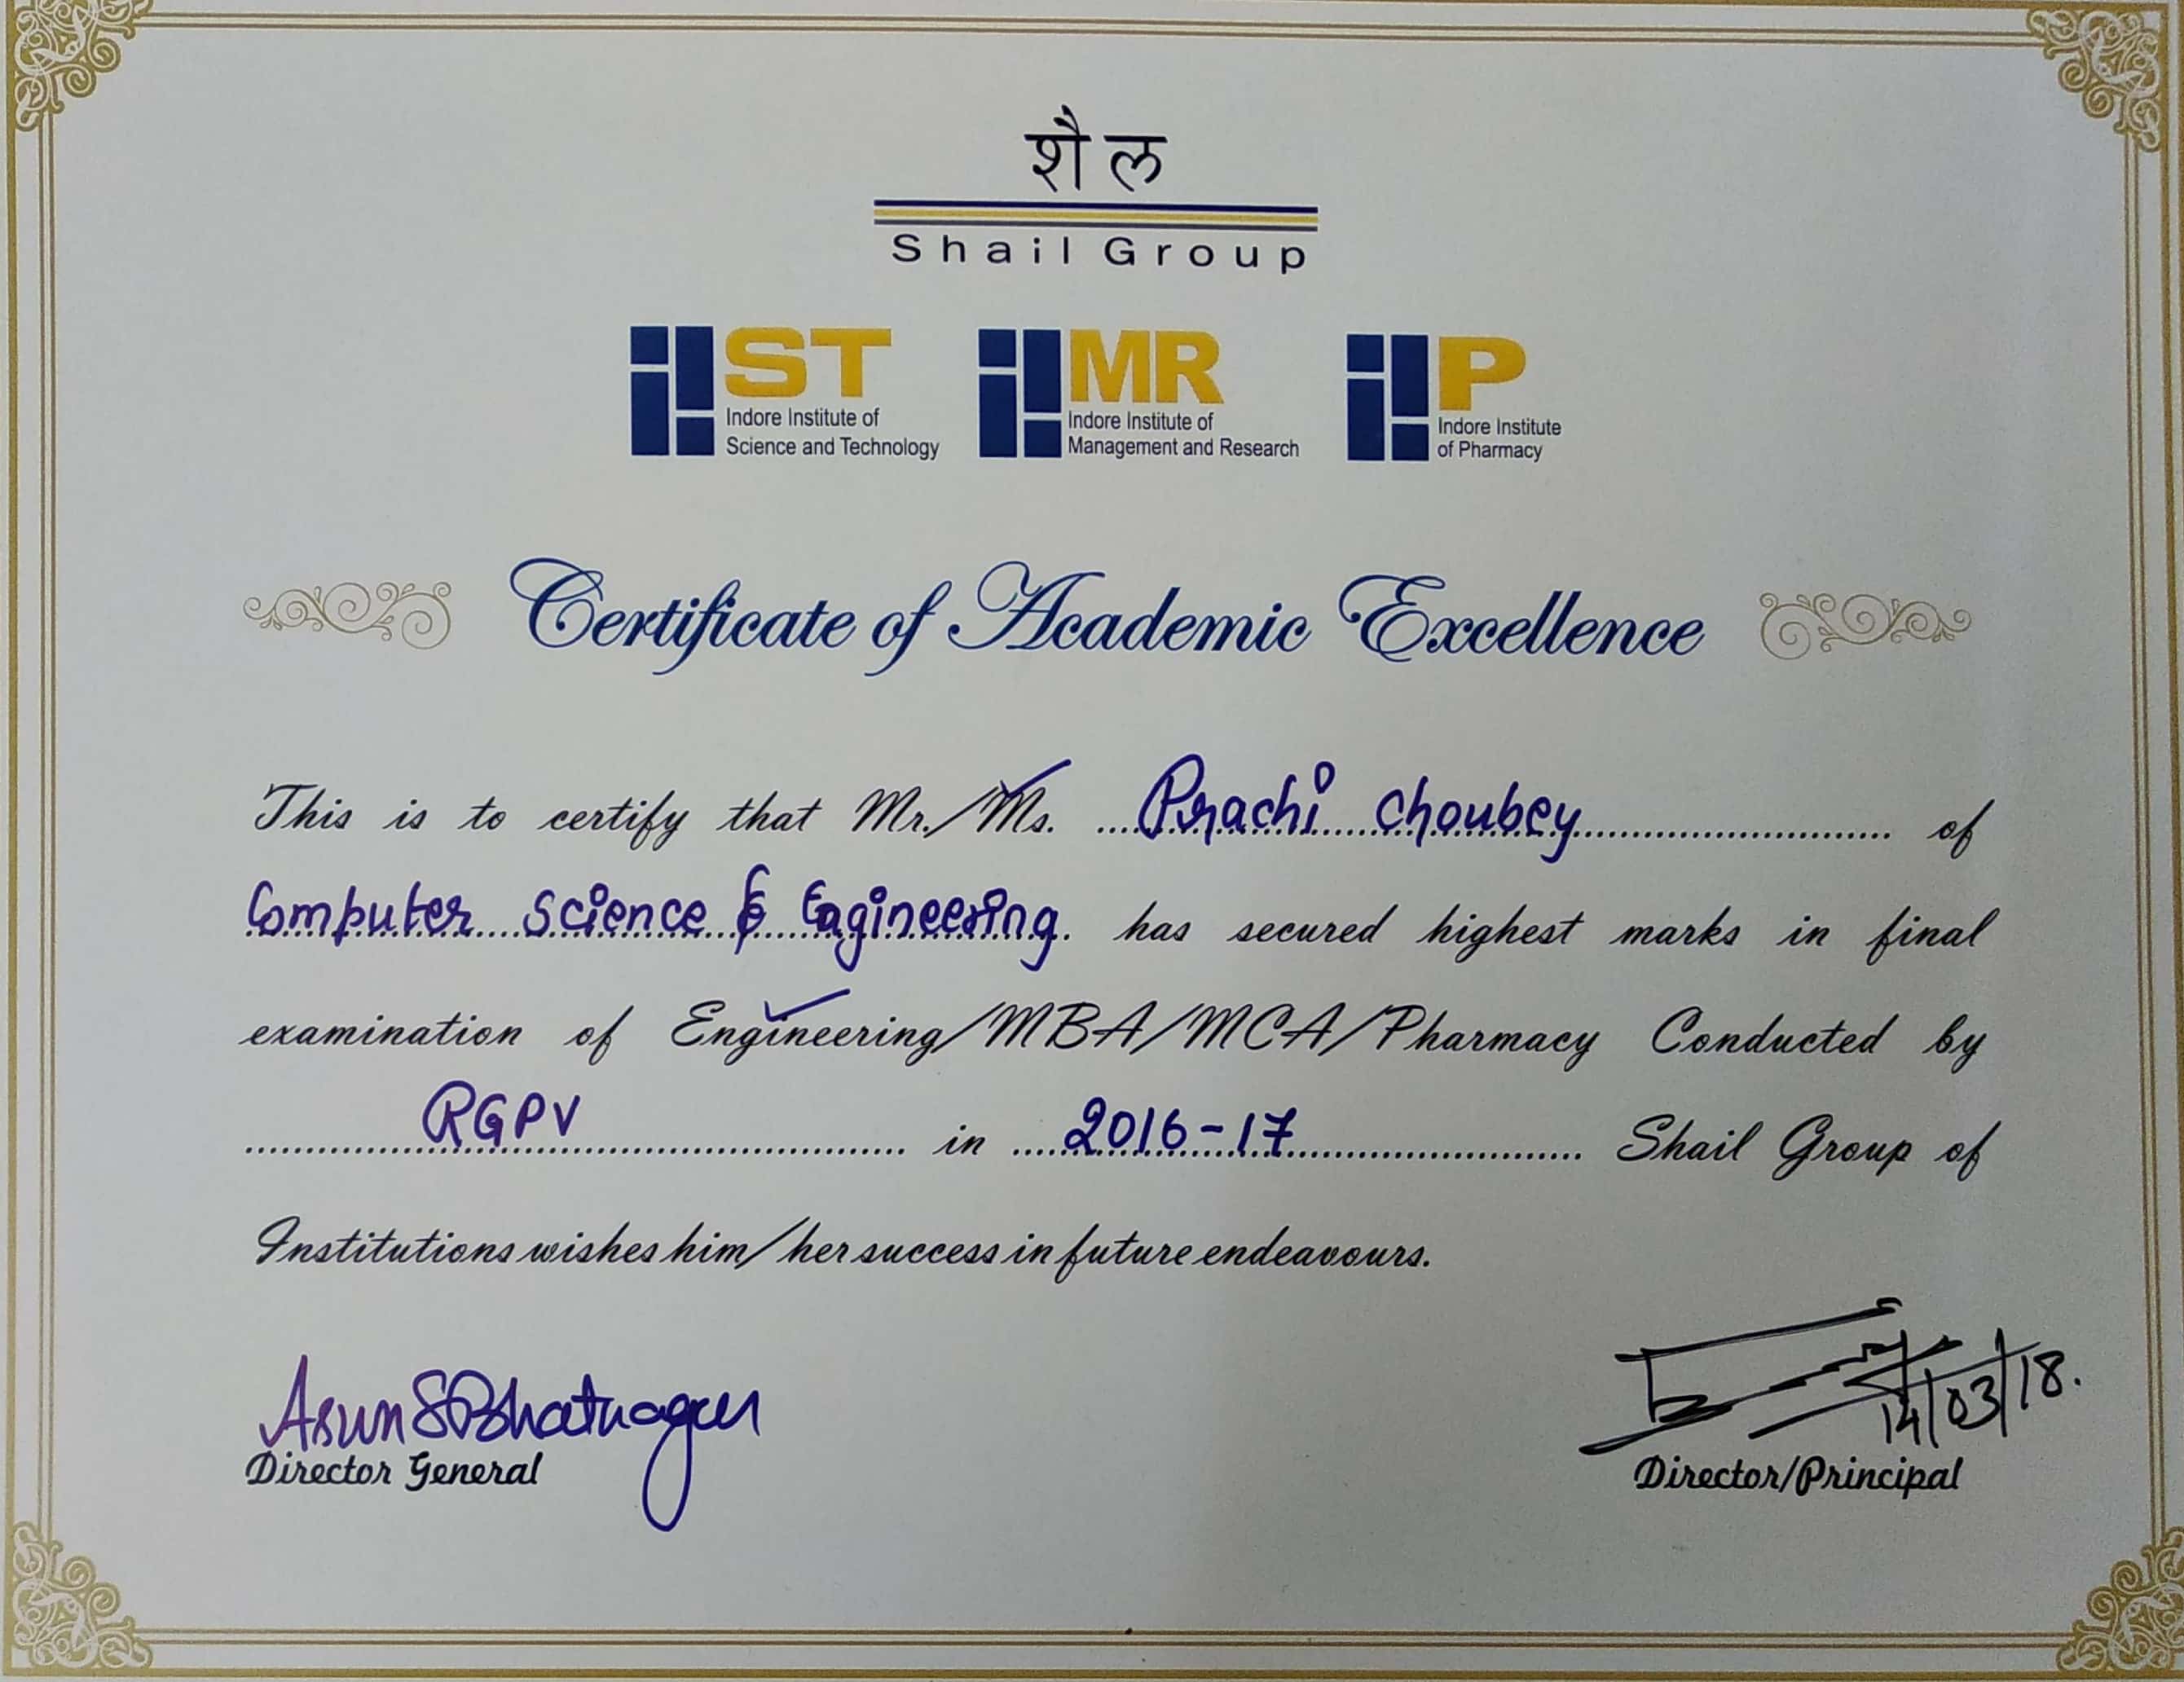 शैल
Shail Group
IIST IIMR IIP
Indore Institute of Science and Technology
Indore Institute of Management and Research
Indore Institute of Pharmacy
Certificate of Academic Excellence
This is to certify that Mr./Ms. Prachi Choubey of
Computer Science & Engineering has secured highest marks in final
examination of Engineering/MBA/MCA/Pharmacy Conducted by
RGPV in 2016-17 Shail Group of
Institutions wishes him/her success in future endeavours.
Arun S Bhatnagar
14/03/18.
Director General Director/Principal